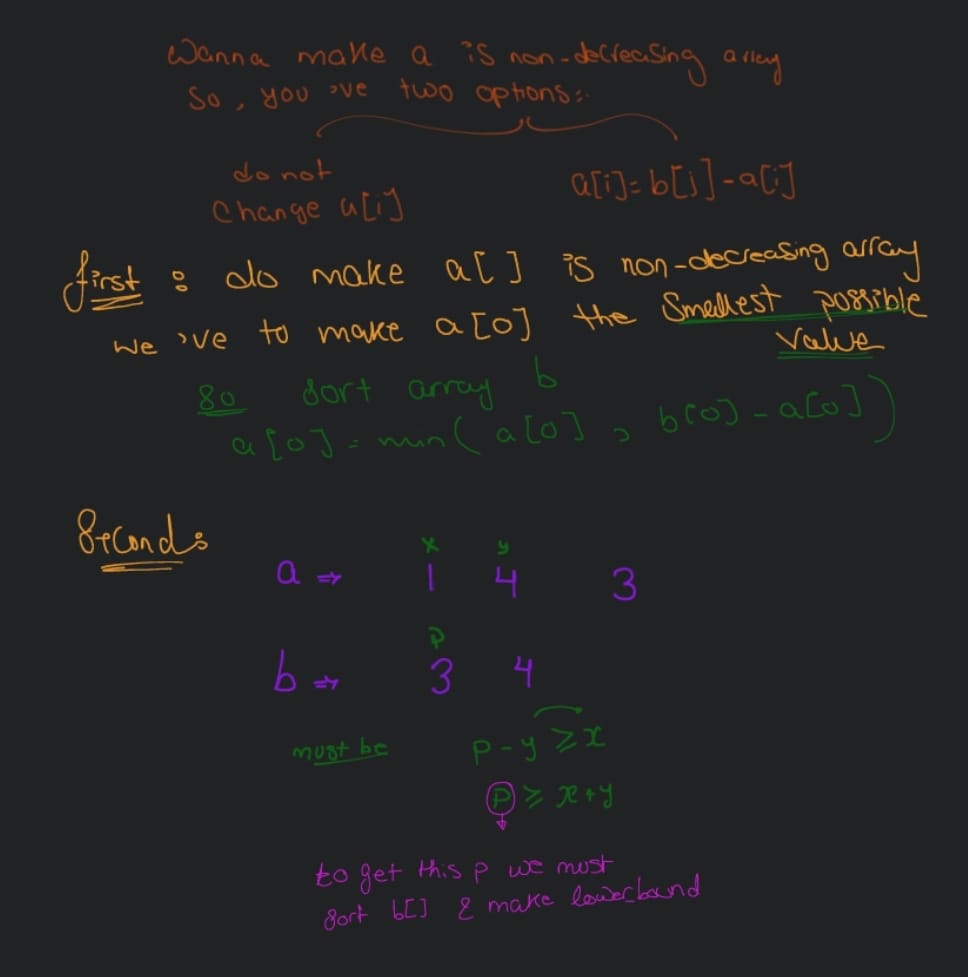 Wanna make a is non-decreasing array
So, you 've two options:.
do not
change a[i]
a[i]=b[j]-a[i]
first : do make a[] is non-decreasing array
we 've to make a[0] the Smallest possible
value
So sort array b
a[0] = min( a[0] , b[0] - a[0] )
Second:
x y
a ⇒ 1 4 3
p
b ⇒ 3 4
must be p-y ≥ x
p ≥ x+y
to get this p we must
sort b[] & make lower_bound